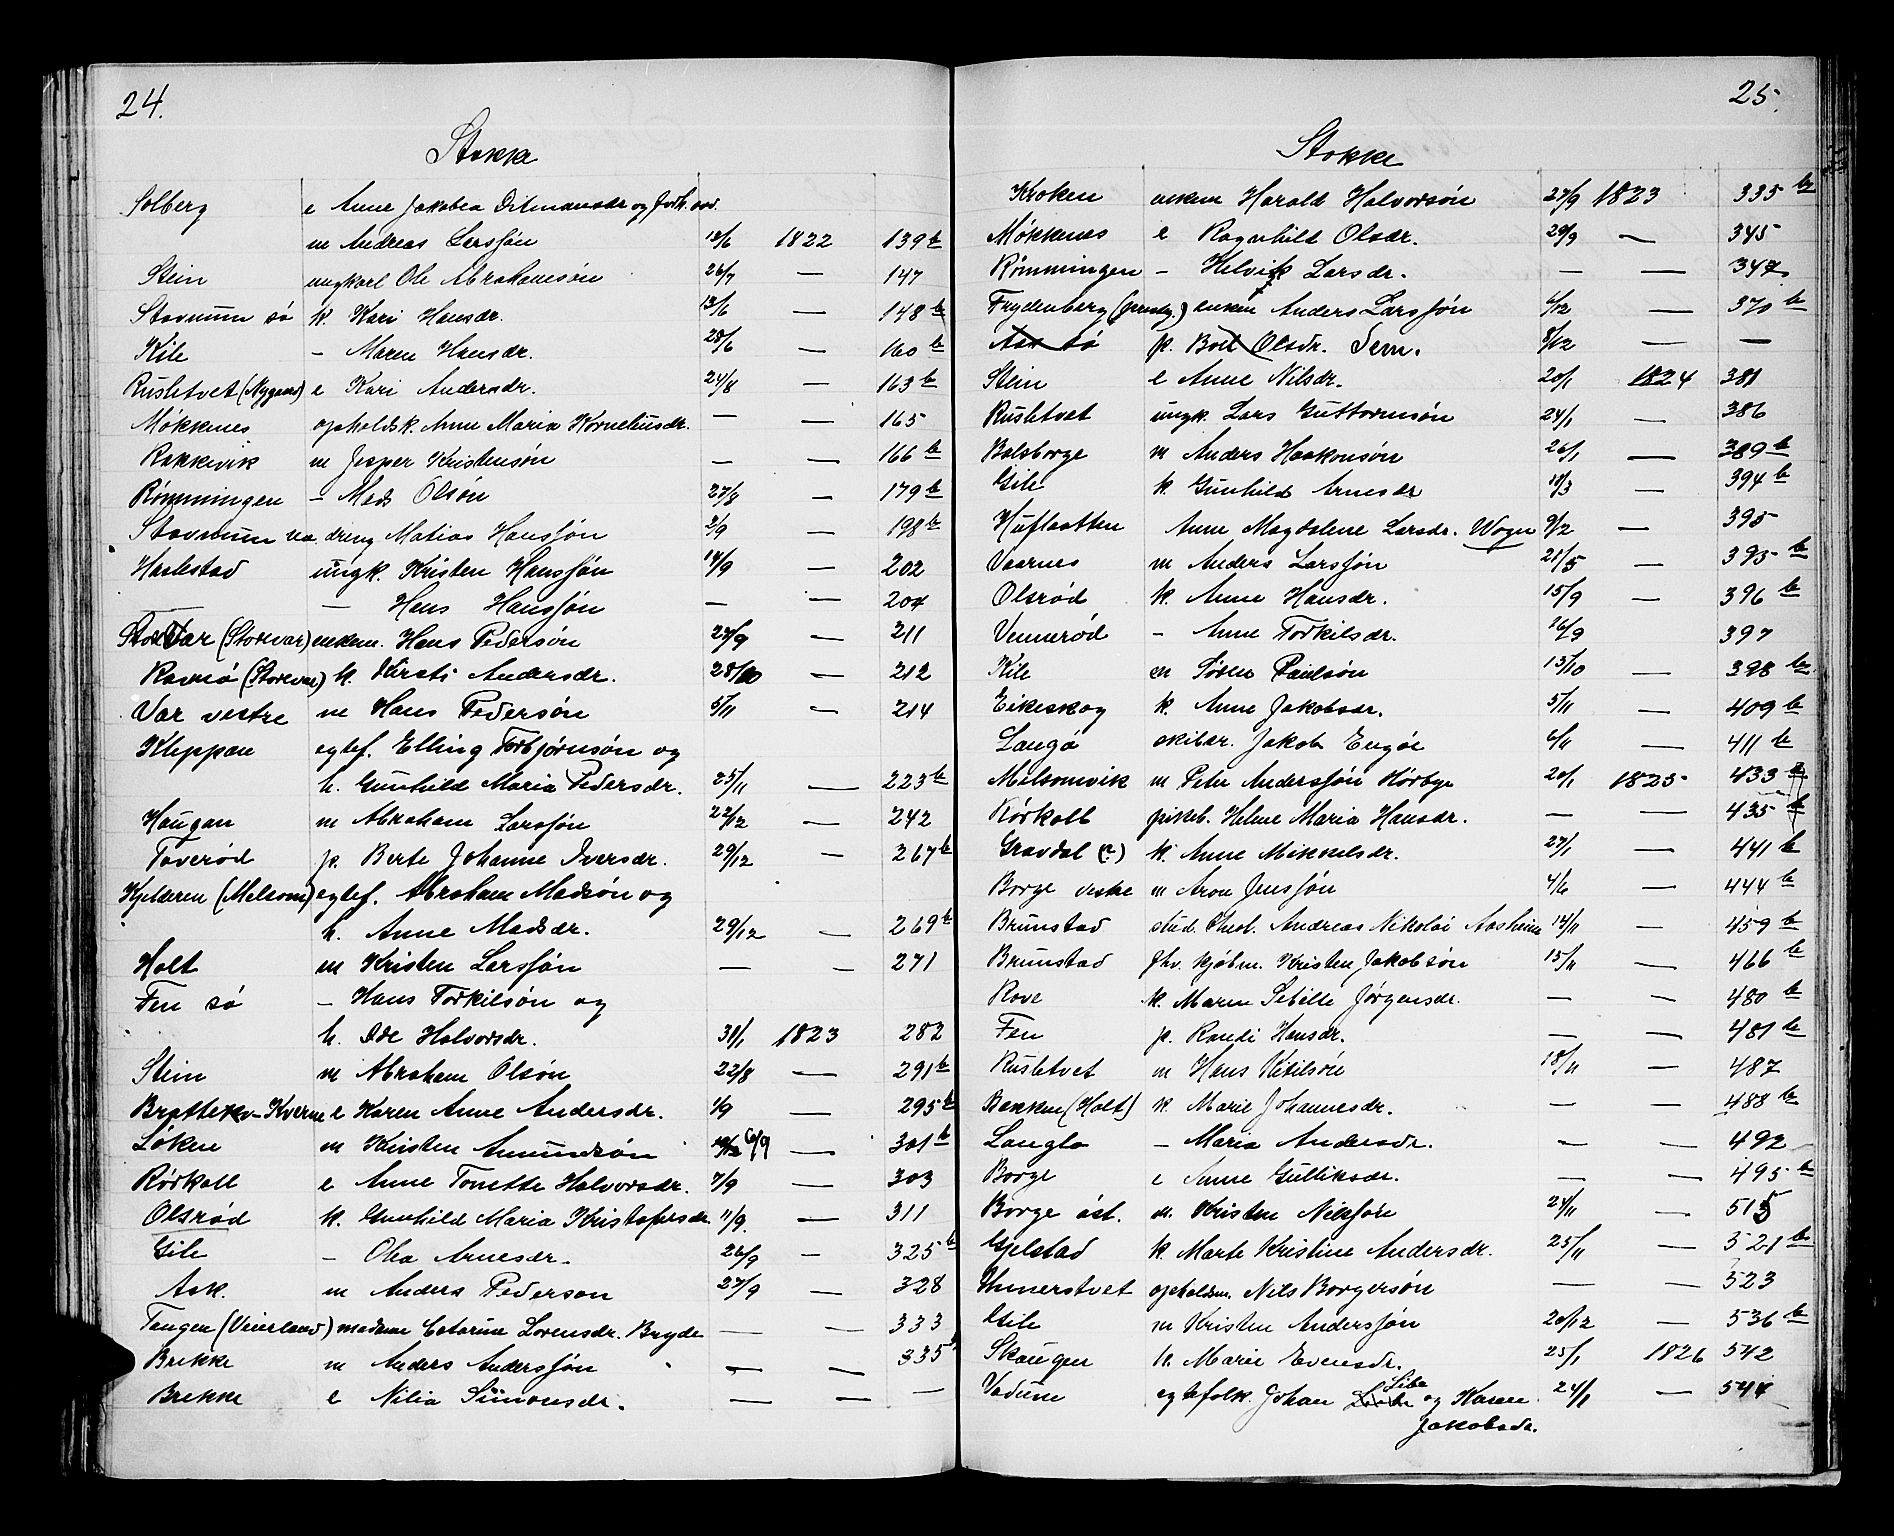 24.
Stokke
Solberg e Anne Jakobea Ditmansdr og forh.
m Andreas Larssøn 13/6 1822 139 b
Stein ungkarl Ole Abrahamsøn 26/7 — 147
Stavnum sø k. Kari Hansdr. 13/6 — 148 b
Kile – Maren Hansdr. 28/6 — 160 b
Ruslttvet (Nygaard) e Kari Andersdr. 24/8 — 163 b
Møkkenes opholdsk. Anne Maria Korneliusdr. — — 165
Rakkevik m Jesper Kristensøn — — 166 b
Rømmingen – Mads Olsøn 27/8 — 179 b
Stavnum dreng Matias Hanssøn 2/9 — 198 b
Haslestad ungk. Kristen Hanssøn 14/9 — 202
— Hans Hanssøn — — 204
Store Var (Storevar) enkem. Hans Pedersøn 27/9 — 211
Ravnø (Storevar) k. Kirsti Andersdr. 28/10 — 212
Var vestre m Hans Pedersøn 5/11 — 214
Kleppan egtef. Elling Torbjørnsøn og
h. Gunhild Maria Pedersdr. 25/11 — 223 b
Haugan m Abraham Larssøn 22/12 — 242
Taverød p. Berte Johanne Iversdr. 29/12 — 267 b
Kjelderen (Melsom) egtef. Abraham Madsøn og
h. Anne Madsdr. 29/12 — 269 b
Holt m Kristen Larssøn — — 271
Fen sø – Hans Torkilsøn og
h. Ide Halvorsdr. 31/1 1823 282
Stein m Abraham Olsøn 22/8 — 291 b
Bratteko-Kverne e Karen Anne Andersdr. 1/9 — 295 b
Løken m Kristen Amundsøn 6/9 — 301 b
Rørkoll e Anne Tonette Halvorsdr. 7/9 — 303
Olsrød k. Gunhild Maria Kristofersdr. 11/9. — 311
Gile – Olea Arnesdr. 26/9 – 325 b
Ask. m Anders Pederson 27/9 — 328
Tangen (Veierland) madame Catarine Lorensdr. Bryde — — 333
Brekke m Anders Anderssøn — — 335
Brekke e Nilia Simonsdr. — — —
25.
Stokke
Kroken enkem Harald Halvorsøn 27/9 1823 335 b
Møkkenes e Ragnhild Olsdr. 29/9 — 345
Rømmingen – Helvik Larsdr. — — 347
Frydenberg (Jernsty.) enkem Anders Larssøn 6/12 — 370 b
Ask sø p. Boel Olsdr. Sem. 8/12 — —
Stein e Anne Nilsdr. 20/1 1824 381
Ruslttvet ungk. Lars Guttormsøn 24/1 — 386
Bolsborge m Anders Haakonsøn 26/1 — 389 b
Gile k. Gunhild Arnesdr 18/3 — 394 b
Huflaatten Anne Magdalene Larsdr. Wogn 9/2 — 395
Vaarnes m Anders Larssøn 21/5 — 395 b
Olsrød k. Anne Hansdr. 15/9 — 396 b
Vennerød – Anne Torkilsdr. 16/9 397
Kile m Søren Paulsøn 13/10 — 398 b
Eikeskog k. Anne Jakobsdr. 5/11 — 409 b
Langø skibsr. Jakob Engøe 6/11 — 411 b
Melsomvik m Peter Anderssøn Hørbye 20/1 1825 433
Rørkoll pikeb. Helene Maria Hansdr. — — 435 b
Gravdal (?) k. Anne Mikkelsdr. 27/1 — 441 b
Borge vestre m Aron Jenssøn 4/6 — 444 b
Brunstad stud. theol. Andreas Nikolai Aasheim 14/11 — 459 b
Brunstad fhv. kjøbm. Kristen Jakobsøn 15/11 — 466 b
Rove k. Maren Sebille Jørgensdr. — — 480 b
Fen p. Randi Hansdr. — — 481 b
Ruslttvet m Hans Ketilsøn 18/11 — 487
Bakken (Holt) k. Marie Johannesdr. — — 488 b
Langlo – Maria Andersdr. — — 492
Borge e Anne Gulliksdr. — — 495 b
Borge øst. m. Kristen Nilssøn 24/11 — 515
Gjelstad k Marte Kristine Andersdr. 25/11 — 521 b
Unnerstvet opholdsm. Nils Borgersøn — — 523
Gile m Kristen Anderssøn 20/12 — 536 b
Skaugen k. Marie Evensdr. 25/1 1826 542
Vadum egtefolk. Johan Libe og Karen 24/1 — 544
Jakobsdr.